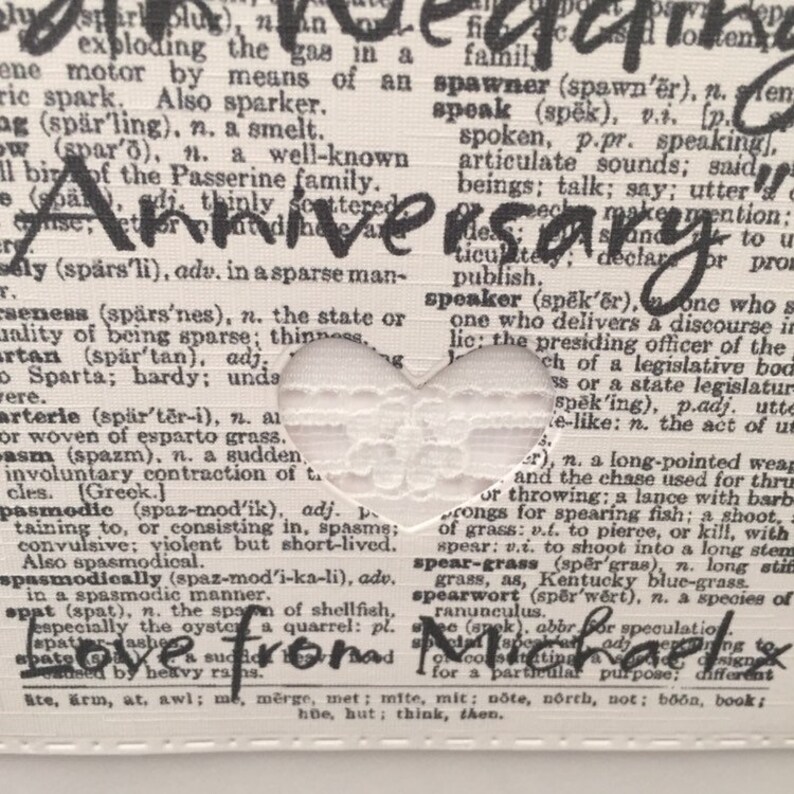 Wedding
Anniversary"
Love from Michael x
exploding the gas in a
ene motor by means of an
ric spark. Also sparker.
ng (spär'ling), n. a smelt.
ow (spar'ō), n. a well-known
ll bird of the Passerine family.
adj. thinly scattered
ely (spärs'li), adv. in a sparse man-
r.
rseness (spärs'nes), n. the state or
uality of being sparse; thinness.
artan (spär'tan), adj.
o Sparta; hardy;
vere.
arterie (spär'tēr-i), n.
or woven of esparto grass.
asm (spazm), n. a sudden,
involuntary contraction of
cles. [Greek.]
pasmodic (spaz-mod'ik), adj.
taining to, or consisting in, spasms;
convulsive; violent but short-lived.
Also spasmodical.
spasmodically (spaz-mod'i-ka-li), adv.
in a spasmodic manner.
spat (spat), n. the spawn of shellfish,
especially the oyster; a quarrel: pl.
caused by heavy rains.
family.
spawner (spawn'ẽr), n.
speak (spēk), v.i. [p.
spoken, p.pr. speaking],
articulate sounds; said
beings; talk; say; utter a
or speech; make mention:
publish.
speaker (spēk'ẽr), n. one who s
one who delivers a discourse in
lic; the presiding officer of the
ch of a legislative bod
ss or a state legislatur
spēk'ing), p.adj. utte
e-like: n. the act of ut
n. a long-pointed weap
and the chase used for thru
or throwing; a lance with barb
prongs for spearing fish; a shoot,
of grass: v.t. to pierce, or kill, with
spear: v.i. to shoot into a long stem
spear-grass (spēr'gras), n. long stiff
grass, as, Kentucky blue-grass.
spearwort (spēr'wẽrt), n. a species of
ranunculus.
spec (spek), abbr. for speculation.
for a particular purpose; different
āte, ärm, at, awl; mē, mẽrge, met; mīte, mit; nōte, nôrth, not; bōōn, book;
hūe, hut; think, then.